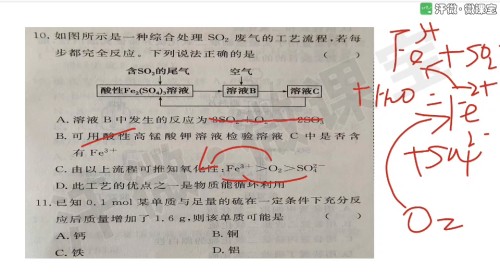 汗微·微课宝
10. 如图所示是一种综合处理 SO₂ 废气的工艺流程,若每
步都完全反应。下列说法正确的是 ( )
含SO₂的尾气 空气
酸性Fe₂(SO₄)₃溶液 溶液B 溶液C
A. 溶液 B 中发生的反应为 2SO₂+O₂ 2SO₃
B. 可用酸性高锰酸钾溶液检验溶液 C 中是否含
有 Fe³⁺
C. 由以上流程可推知氧化性:Fe³⁺>O₂>SO₄²⁻
D. 此工艺的优点之一是物质能循环利用
11. 已知 0.1 mol 某单质与足量的硫在一定条件下充分反
应后质量增加了 1.6 g,则该单质可能是 ( )
A. 钙 B. 铜
C. 铁 D. 铝
Fe³⁺+SO₂
+H₂O =
Fe²⁺
+SO₄²⁻
O₂